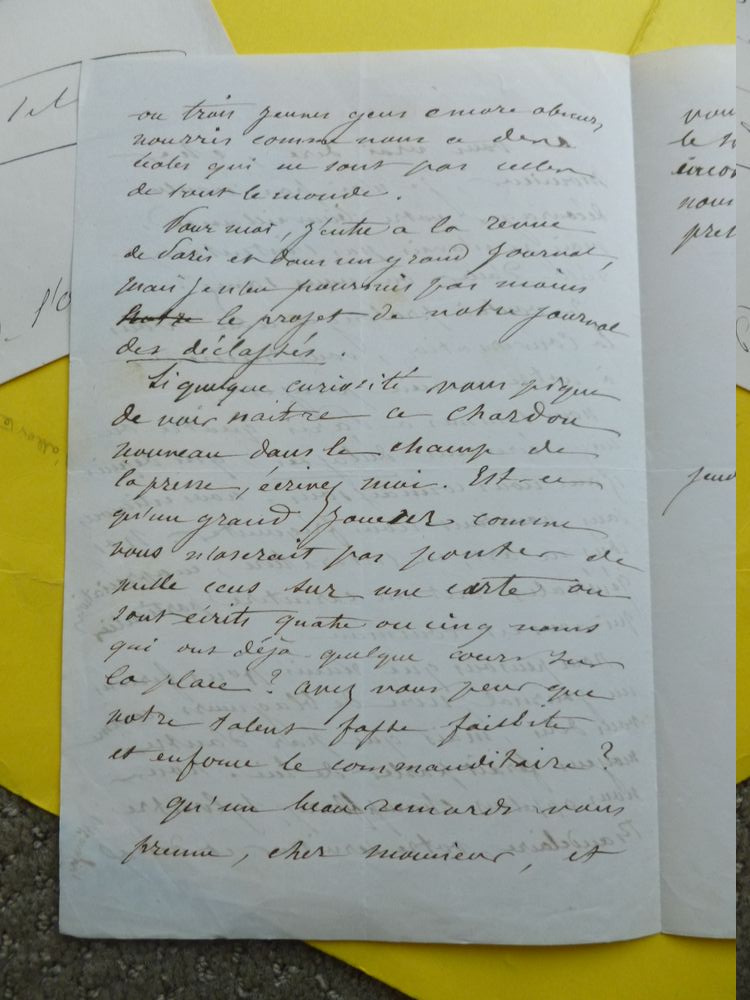 ou trois jeunes gens encore obscurs,
nourris comme nous à des
écoles qui ne sont pas celles
de tout le monde.
Pour moi, j'entre à la revue
de Paris et dans un grand journal,
mais je n'en poursuis pas moins
notre le projet de notre journal
des déclassés.
Si quelque curiosité vous pique
de voir naître ce chardon
nouveau dans le champ de
la presse, écrivez moi. Est-ce
qu'un grand joueur comme
vous n'oserait pas ponter de
mille ecus sur une carte où
sont écrits quatre ou cinq noms
qui ont déjà quelque cours sur
la place ? avez vous peur que
notre talent fasse faillite
et enfonce le commanditaire ?
qu'un beau remords vous
prenne, cher monsieur, et